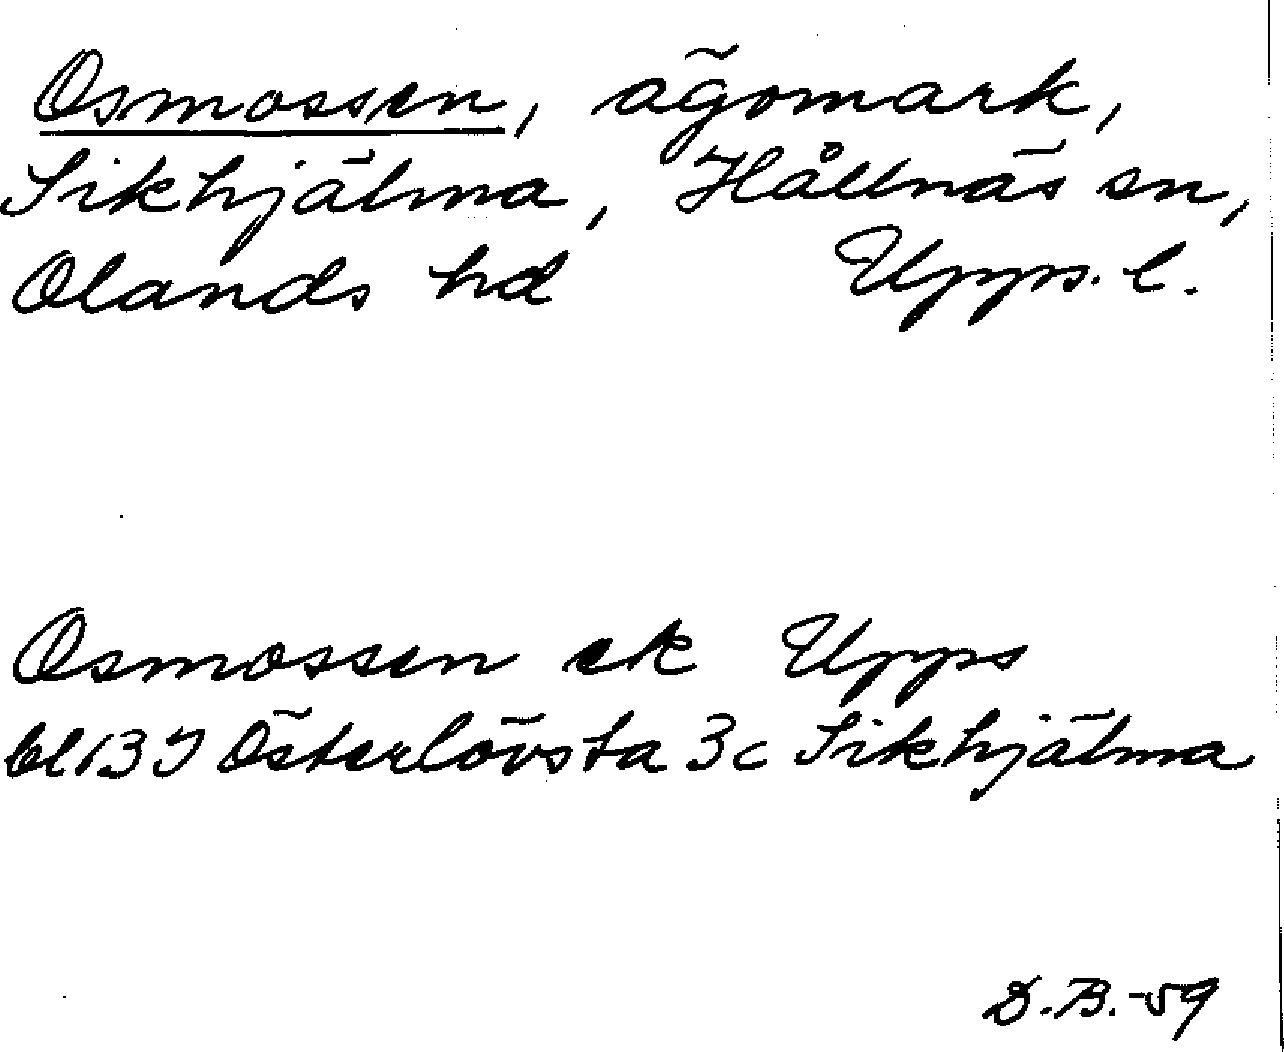 Osmossen, ägomark,
Sikhjälma, Hållnäs sn,
Olands hd Upps. l.
Osmossen ek Upps
bl 137 Österlövsta 3c Sikhjälma
D.B.-59